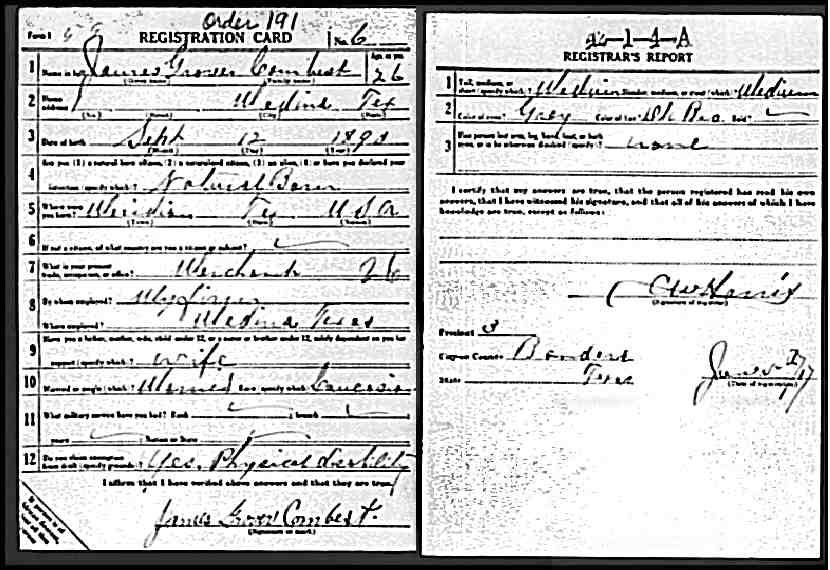 Order 191
Form 1 REGISTRATION CARD No. 6
1 Name in full James Grover Combest Age, in yrs. 26
(Given name) (Family name)
2 Home address Medina Tex
(No.) (Street) (City) (State)
3 Date of birth Sept 12
(Month) (Day) (Year)
4 Are you (1) a natural born citizen, (2) a naturalized citizen, (3) an alien, (4) or have you declared your
intention (specify which)? Natural Born
5 Where were you born? Tex USA
(Town) (State) (Nation)
6 If not a citizen, of what country are you a citizen or subject?
7 What is your present trade, occupation, or office? Merchant 26
8 By whom employed?
Where employed? Medina Texas
9 Have you a father, mother, wife, child under 12, or a sister or brother under 12, solely dependent on you for
support (specify which)? wife
10 Married or single (which)? Married Race (specify which)? Caucasian
11 What military service have you had? Rank ; branch ;
years ; Nation or State
12 Do you claim exemption from draft (specify grounds)? Yes, Physical disability
I affirm that I have verified above answers and that they are true.
James Grover Combest
(Signature or mark)
1-4-A
REGISTRAR'S REPORT
1 Tall, medium, or short (specify which)? Medium Slender, medium, or stout (which)? Medium
2 Color of eyes? Grey Color of hair? Dk Bro. Bald?
3 Has person lost arm, leg, hand, foot, or both eyes, or is he otherwise disabled (specify)? none
I certify that my answers are true, that the person registered has read his own
answers, that I have witnessed his signature, and that all of his answers of which I have
knowledge are true, except as follows:
(Signature of registrar)
Precinct 3
City or County Bandera
State Texas
June
(Date of registration)